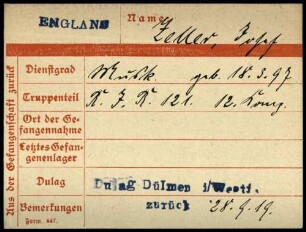 ENGLAND
Name
Zeller, Josef
Aus der Gefangenschaft zurück
Dienstgrad
Musk. geb. 18.3.97
Truppenteil
R. J. R. 121. 12. Komp.
Ort der Ge-
fangennahme
Letztes Gefan-
genenlager
Dulag
Dulag Dülmen i/Westf.
Bemerkungen
zurück 28.9.19.
Form. 447.